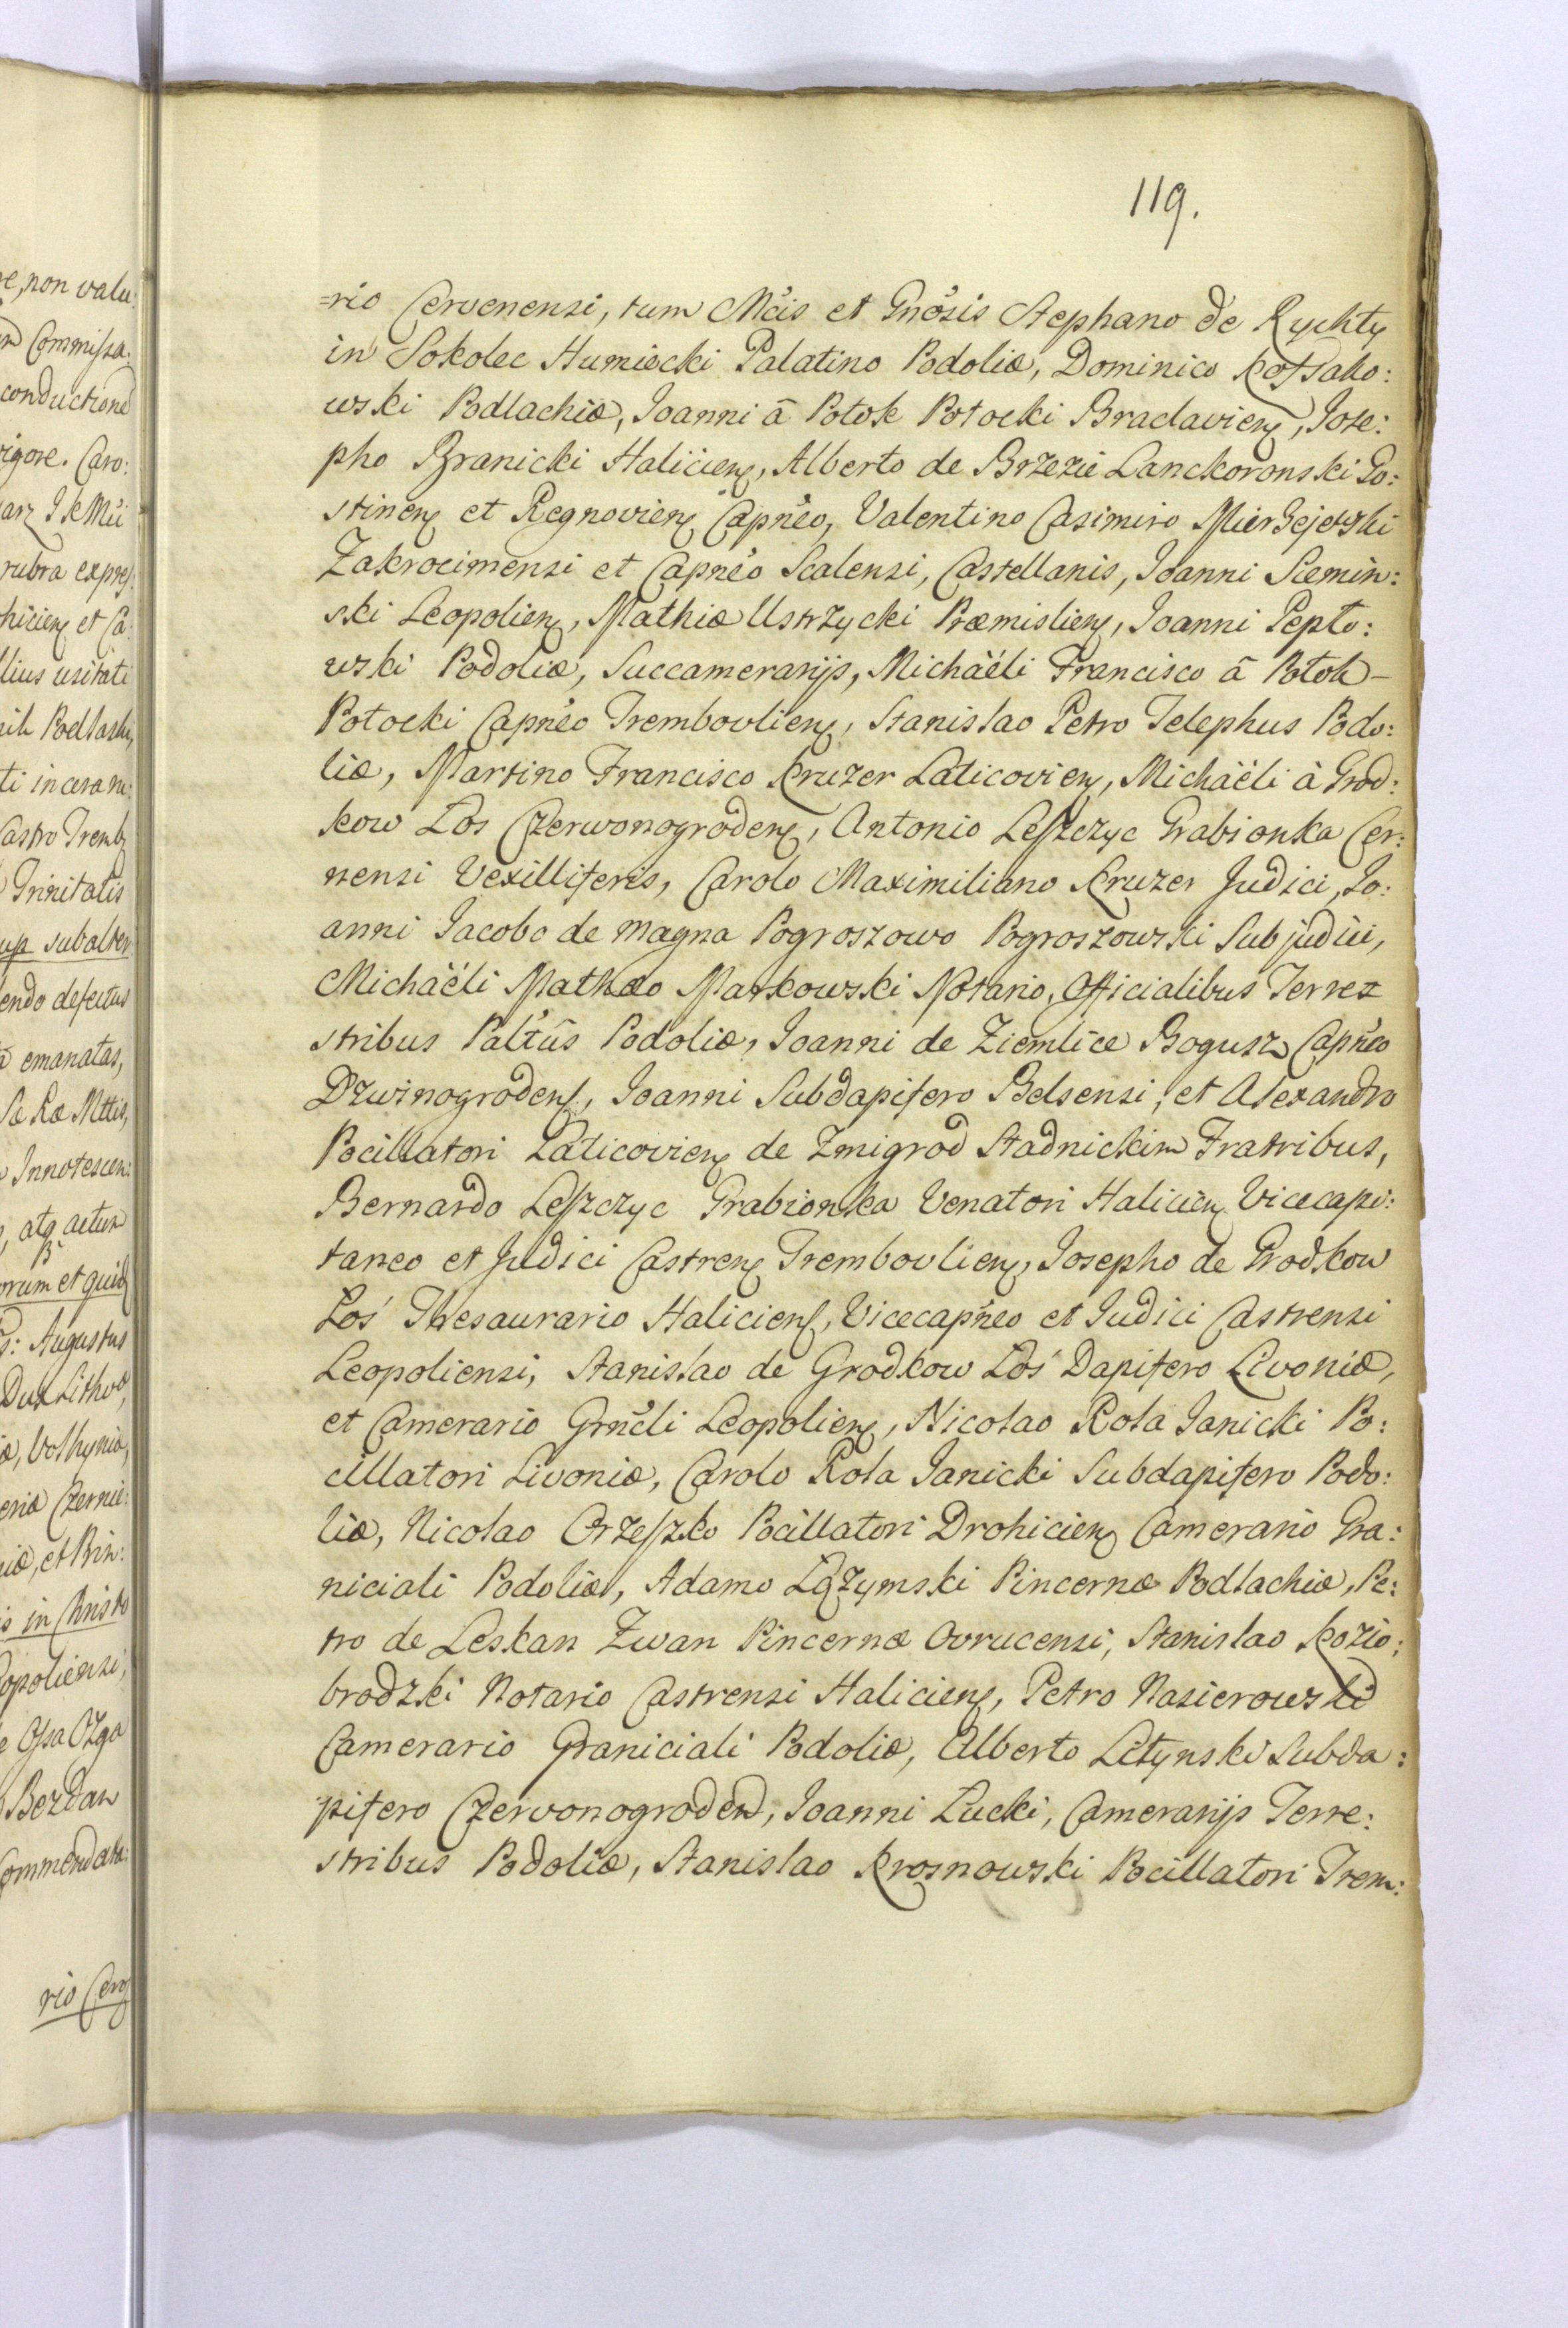 119.
=rio Cervenensi, tum Mcis et Gnosis Stephano de Rychty
in Sokolec Humiecki Palatino Podoliæ, Dominico Kossako:
wski Podlachiæ, Joanni â Potok Potocki Braclavien, Jose:
pho Branicki Halicien, Alberto de Brzezie Lanckoronski Go:
stinen et Regnovien Capneo, Valentino Casimiro Mierzejewski
Zakrocimensi et Capneo Scalensi, Castellanis, Joanni Siemin:
ski Leopolien, Mathiæ Ustrzycki Præmislien, Joanni Pepło:
wski Podoliæ, Succamerarijs, Michäéli Francisco â Potok-
Potocki Capneo Trembovlien, Stanislao Petro Telephus Podo:
liæ, Martino Francisco Kruzer Laticovien, Michäéli à Grod:
kow Łos Czerwonogroden, Antonio Leszczyc Grabionka Cer:
nensi Vexilliferis, Carolo Maximiliano Kruzer Judici, Jo:
anni Jacobo de magna Pogroszowo Pogroszowski Subjudici,
Michäéli Mathæo Markowski Notario, Officialibus Terrez
stribus Paltûs Podoliæ, Joanni de Ziemlice Bogusz Capneo
Dzwinogrodens, Joanni Subdapifero Belsensi, et Alexandro
Pocillatori Laticovien de Zmigrod Stadnickim Fratribus,
Bernardo Leszczyc Grabionka Venatori Halicien Vicecapi:
taneo et Judici Castren Trembovlien, Josepho de Grodkow
Łoś Thesaurario Haliciens, Vicecapneo et Judici Castrensi
Leopoliensi, Stanislao de Grodkow Łoś Dapifero Livoniæ,
et Camerario Grncli Leopolien, Nicolao Rola Janicki Po:
cillatori Livoniæ, Carolo Rola Janicki Subdapifero Podo:
liæ, Nicolao Orzeszko Pocillatori Drohicien Camerario Gra:
niciali Podoliæ, Adamo Łązymski Pincernæ Podlachiæ, Pe:
tro de Leskan Zwan Pincernæ Ovrucensi, Stanislao Kozio:
brodzki Notario Castrensi Halicien, Petro Nasierowski
Camerario Graniciali Podoliæ, Alberto Letynski Subda:
pifero Czervonogroden, Joanni Łucki, Camerarijs Terre:
stribus Podoliæ, Stanislao Krosnowski Pocillatori Trem: